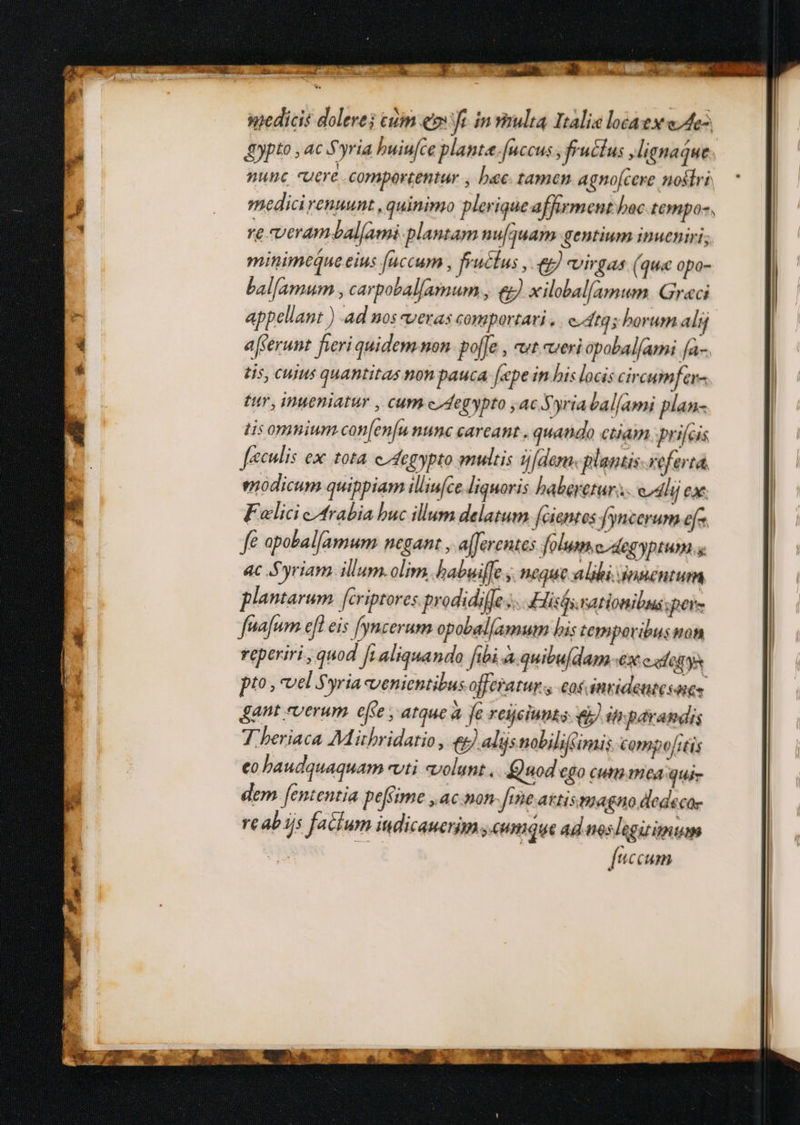 medicis dolere; cùm & si in multa Italiæ loca ex Ae-
gypto, ac Syria huiusce plantæ succus, fructus, lignaque
nunc verè comportentur, hæc tamen agnoscere nostri
medici renuunt, quinimo plerique affirment hoc tempo-
re veram balsami plantam nusquam gentium inueniri;
minimeque eius succum, fructus, & virgas (quæ opo-
balsamum, carpobalsamum, & xilobalsamum Græci
appellant) ad nos veras comportari. Atq; horum alij
asserunt fieri quidem non posse, vt veri opobalsami sa-
tis, cuius quantitas non pauca sæpe in his locis circumfer-
tur, inueniatur, cum Aegypto, ac Syria balsami plan-
tis omnium consensu nunc careant. quando etiam priscis
sæculis ex tota Aegypto multis ijsdem plantis referta,
modicum quippiam illiusce liquoris haberetur. Alij ex
Fælici Arabia huc illum delatum scientes syncerum es-
se opobalsamum negant, asserentes solum Aegyptum,
ac Syriam illum olim habuisse, neque alibi inuentum
plantarum scriptores prodidisse. Hisq; rationibus per-
suasum est eis syncerum opobalsamum his temporibus non
reperiri, quod si aliquando sibi à quibusdam ex Aegy-
pto, vel Syria venientibus offeratur, eos inridentes ne-
gant verum esse, atque à se reijciunt, & in parandis
Theriaca Mithridatio, & alijs nobilissimis compositis
eo haudquaquam vti volunt. Quod ego cum mea qui-
dem sententia pessime, ac non sine artis magno dedeco-
re ab ijs factum iudicauerim, cumque ad nos legitimum
succum